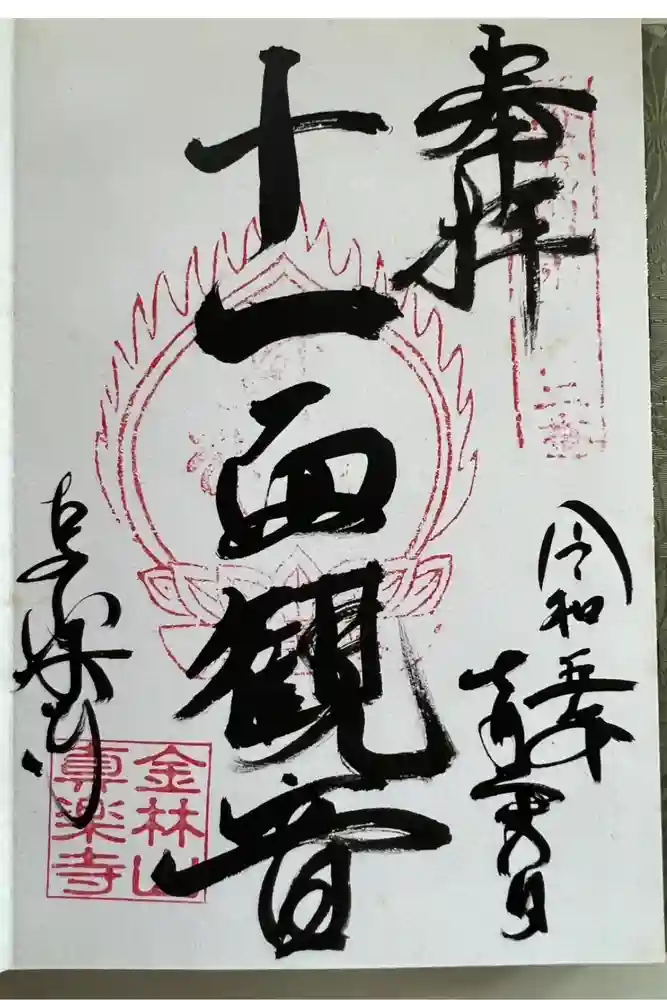 奉拝
令和五年
十一面観音
真楽寺
金林山
真楽寺